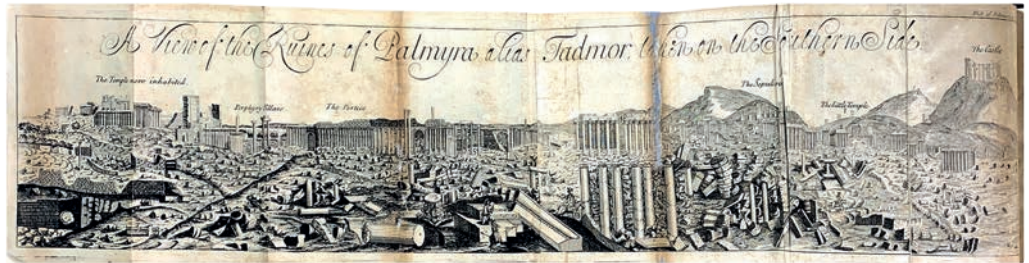 A View of the Ruines of Palmyra alias Tadmor taken on the Southern Side
The Castle
The Temple now inhabited
Porphyry Pillars
The Portico
The Sepulcres
The little Temple